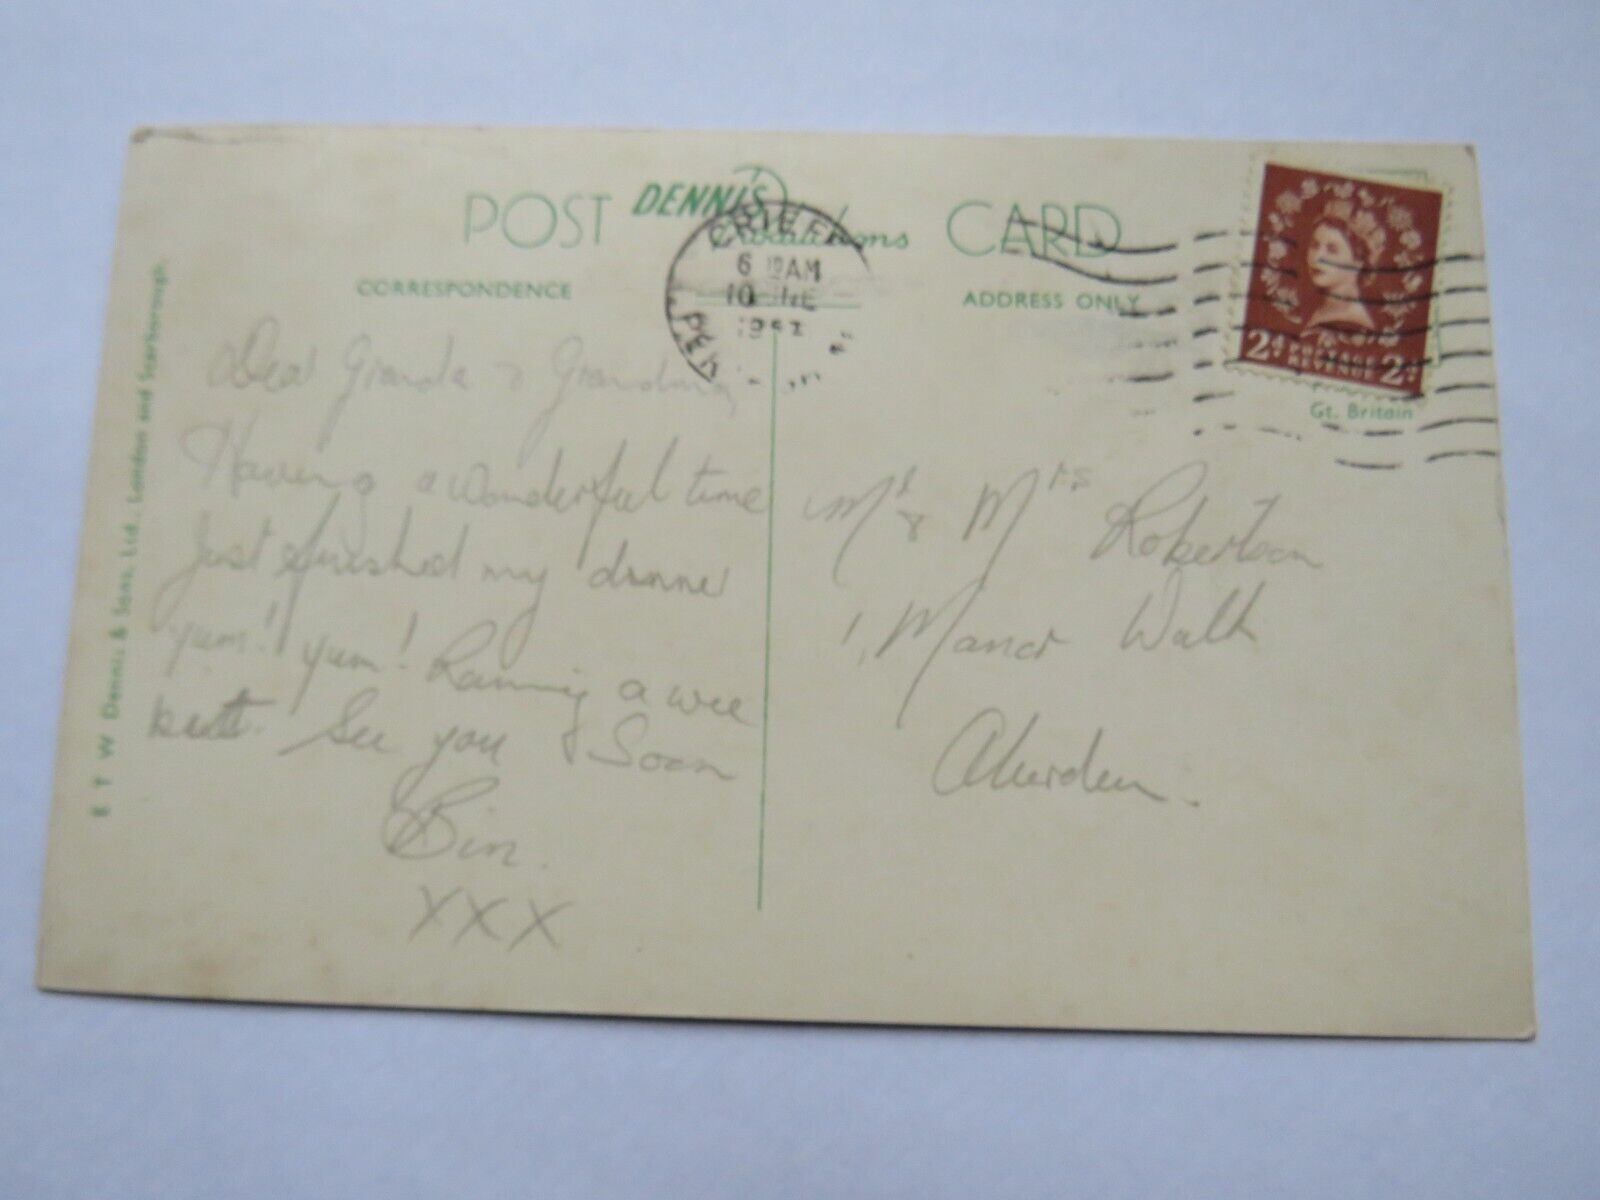 POST DENNIS Productions CARD
CORRESPONDENCE
ADDRESS ONLY
CRIEFF
6 10AM
10 JNE
PERTHS
2d POSTAGE REVENUE 2d
Gt. Britain
E T W Dennis & Sons, Ltd., London and Scarborough.
Dear Granda & Grandma,
Having a wonderful time
Just finished my dinner
yum! yum! Raining a wee
bitt. See you Soon
XXX
Mr & Mrs Robertson
1, Manor Walk
Aberdeen.